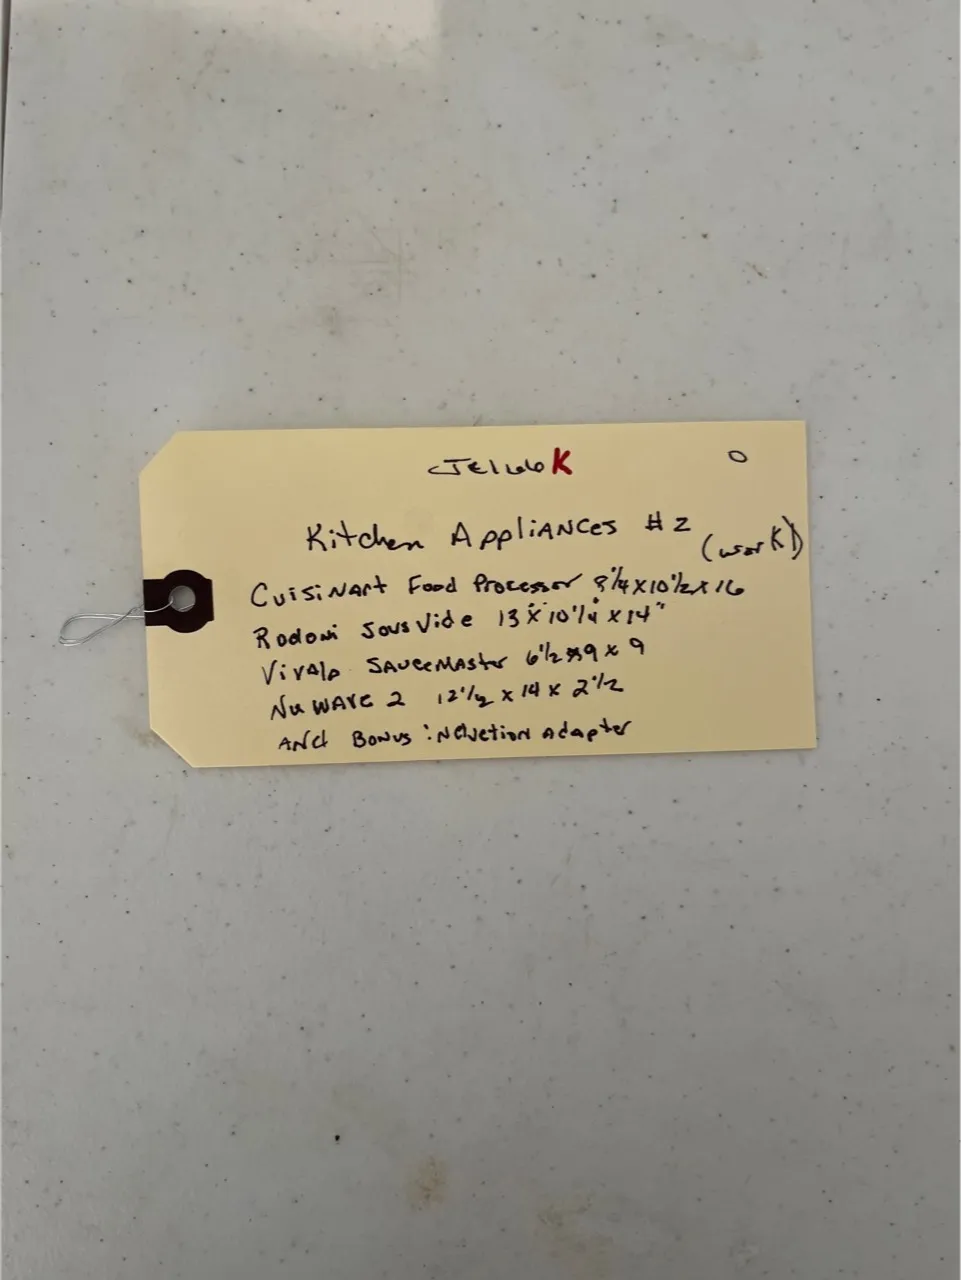 JE166K O
Kitchen Appliances #2
(work)
Cuisinart Food Processor 8 1/4 x 10 1/2 x 16
Rodomi Sous Vide 13" x 10 1/4" x 14"
SauceMaster 6 1/2 x 9 x 9
NuWave 2 12 1/2 x 14 x 2 1/2
And Bonus induction Adapter